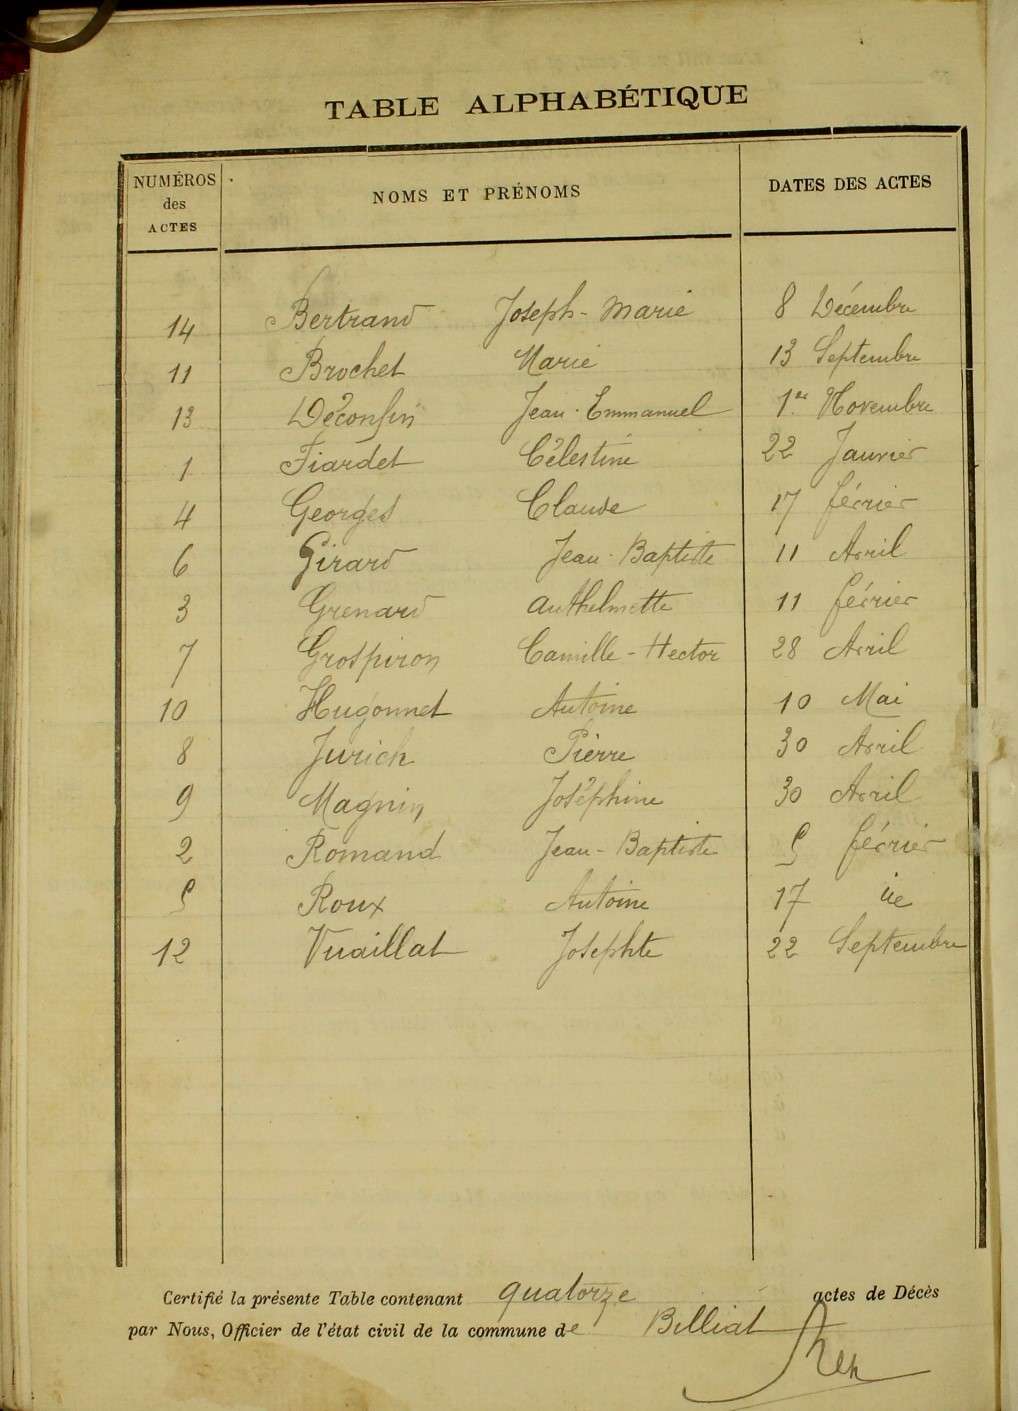 TABLE ALPHABÉTIQUE
NUMÉROS des ACTES NOMS ET PRÉNOMS DATES DES ACTES
14 Bertrand Joseph-Marie 8 Décembre
11 Brochet Marie 13 Septembre
13 Déconfin Jean-Emmanuel 1er Novembre
1 Fiardet Célestine 22 Janvier
4 Georges Claude 17 février
6 Girard Jean-Baptiste 11 Avril
3 Grenard Anthelmette 11 février
7 Grospiron Camille-Hector 28 Avril
10 Hugonnet Antoine 10 Mai
8 Jurich Pierre 30 Avril
9 Magnin Joséphine 30 Avril
2 Romand Jean-Baptiste 5 février
5 Roux Antoine 17
12 Vuaillat Josephte 22 Septembre
Certifié la présente Table contenant quatorze actes de Décès
par Nous, Officier de l'état civil de la commune de Billiat